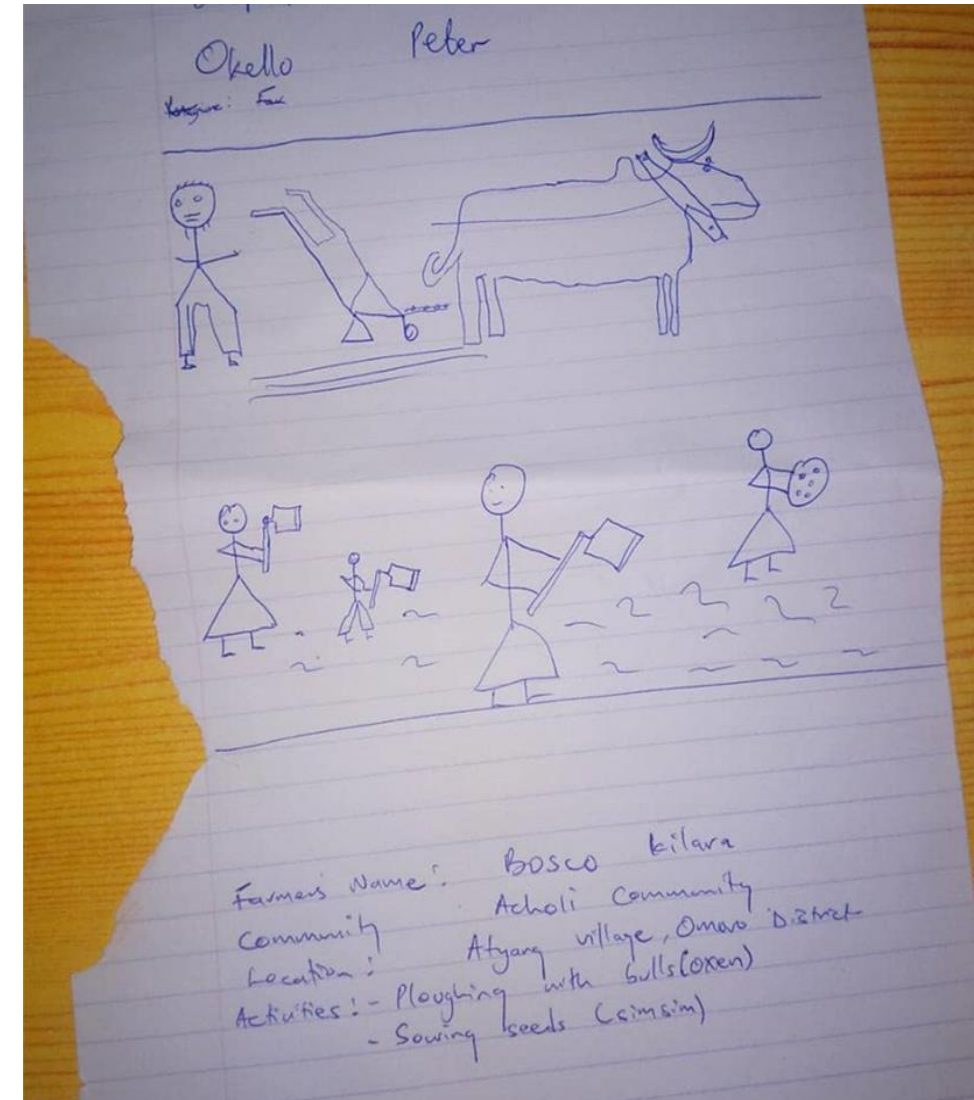 Okello Peter
Farmers Name: Bosco Kilara
Community Acholi Community
Location: Atyang village, Omoro District
Activities: - Ploughing with bulls (oxen)
- Sowing seeds (simsim)